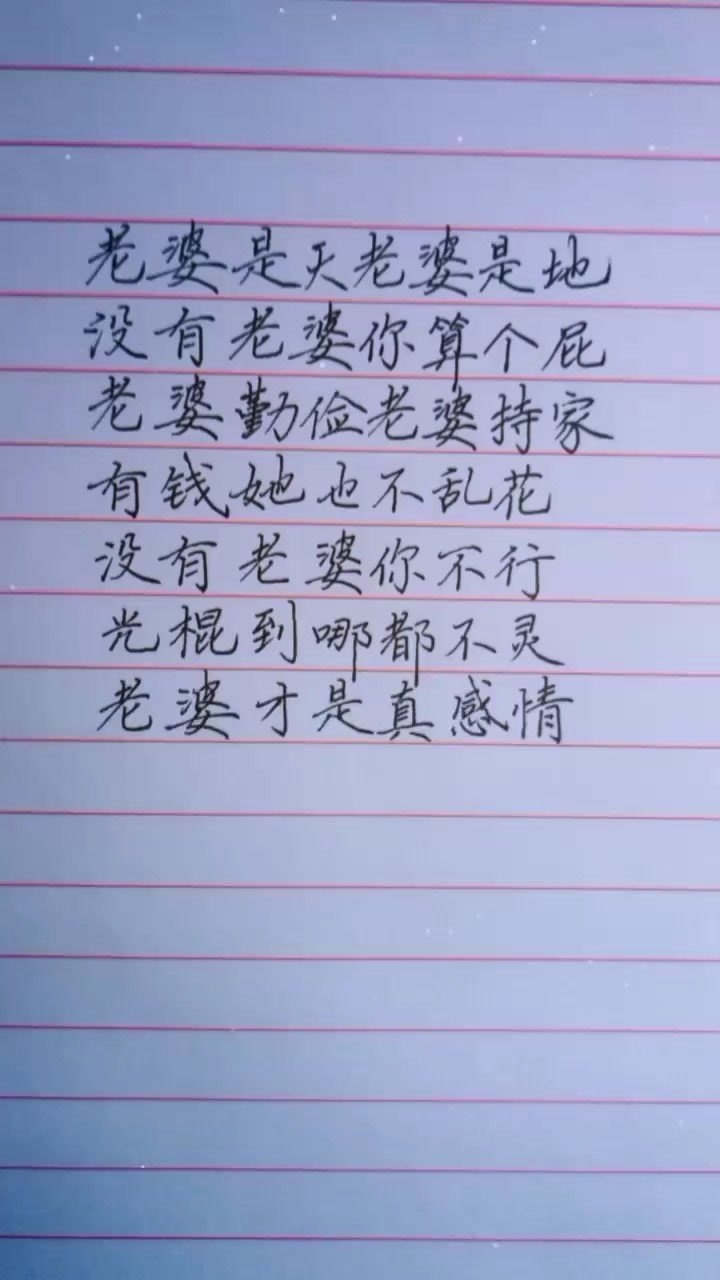 老婆是天老婆是地
没有老婆你算个屁
老婆勤俭老婆持家
有钱她也不乱花
没有老婆你不行
光棍到哪都不灵
老婆才是真感情